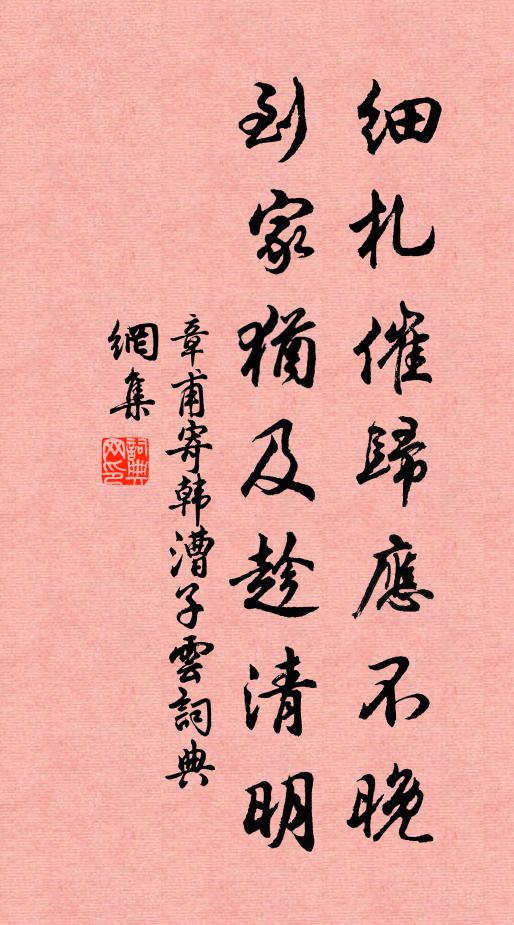 細札催歸應不晚
到家猶及趁清明
章甫寄韩漕子雲詞典
網集
詞典網印